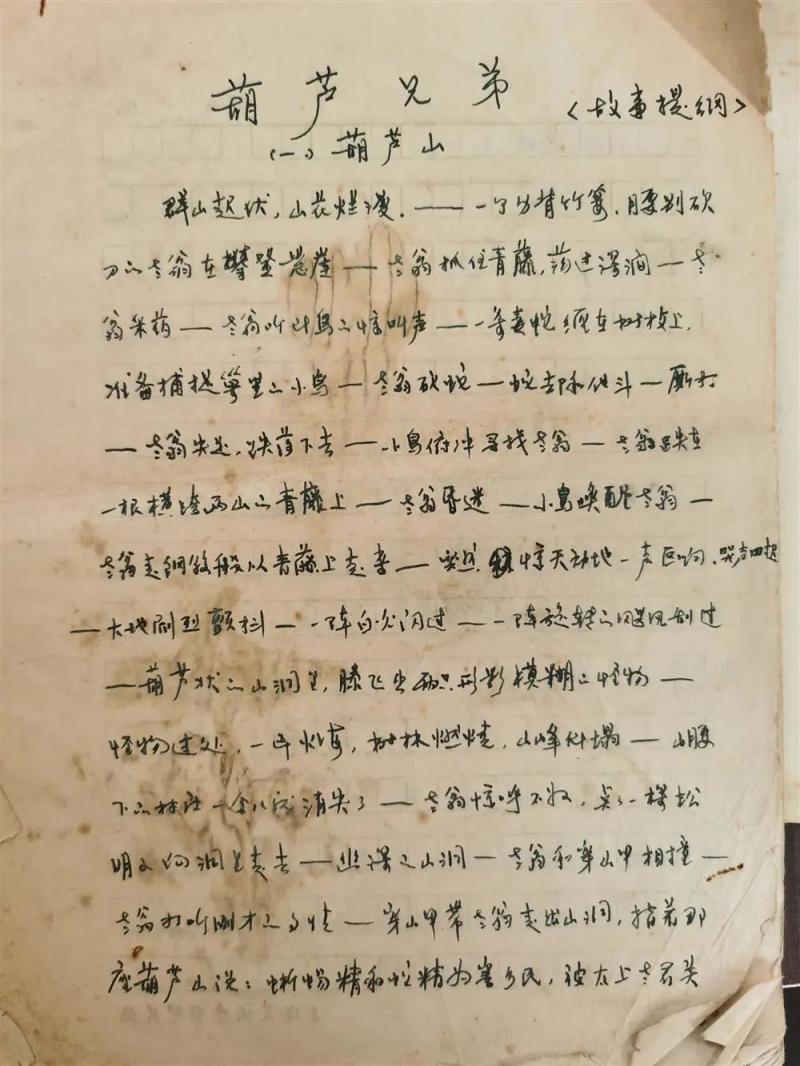 葫芦兄弟
<故事提纲>
(一)葫芦山
群山起伏，山花烂漫．——一个身背竹篓、腰别砍
刀的老翁在攀登悬崖——老翁抓住青藤，荡过深涧——老
翁采药——老翁听到鸟的惊叫声——一条毒蛇缠在树枝上，
准备捕捉窝里的小鸟——老翁砍蛇——蛇却和他斗——厮打
——老翁失足，跌落下去——小鸟俯冲寻找老翁——老翁跌在
一根横跨两山的青藤上——老翁昏迷——小鸟唤醒老翁——
老翁走钢丝般从青藤上走来——突然，惊天动地一声巨响、哭声四起
——大地剧烈颤抖——一阵白光闪过——一阵旋转的飓风刮过
——葫芦状的山洞里，腾飞出两只形影模糊的怪物——
怪物过处，一片火海，树林燃烧，山峰倒塌——山腰
下的村庄一余儿 消失了——老翁惊呼不好，点了一棵松
明又向洞里走去——幽深的山洞——老翁和穿山甲相撞——
老翁打听刚才的事情——穿山甲带老翁走出山洞，指着那
座葫芦山说：蜥蜴精和蛇精为害乡民，被太上老君关